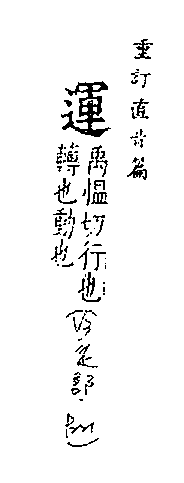 重訂直音篇
運
禹愠切行也
轉也動也